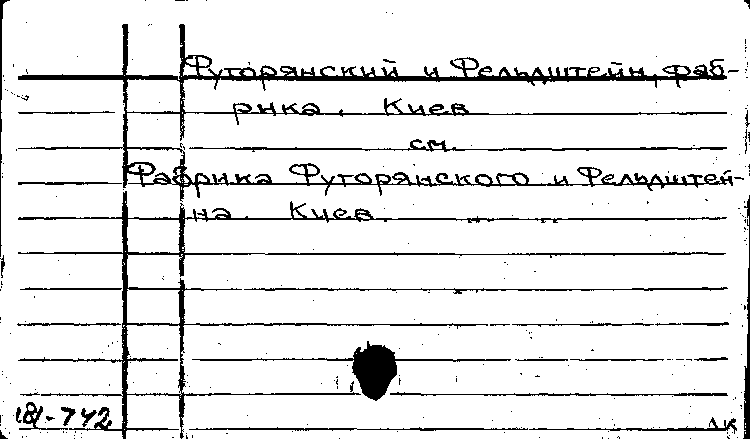 Футорянский и Фельдштейн, фаб-
рика. Киев
см.
Фабрика Футорянского и Фельдштей-
на. Киев.
181-742